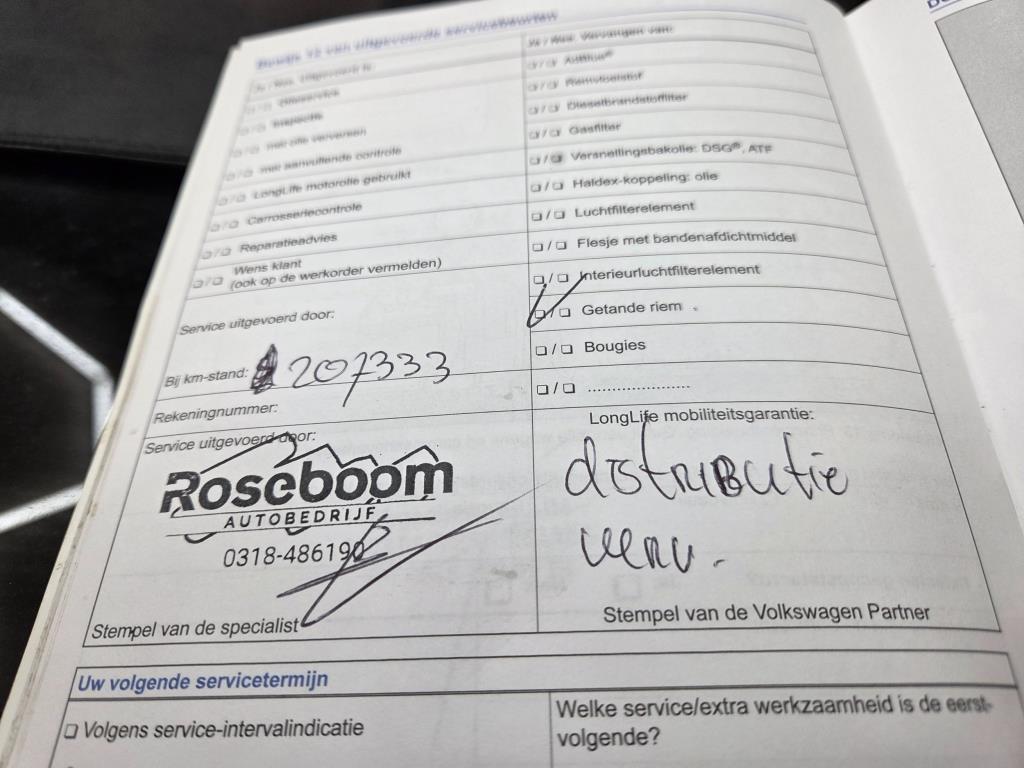 Bewijs 12 van uitgevoerde servicebeurten
Ja / Nee, Uitgevoerd is:
❏ / ❏ Olieservice
❏ / ❏ Inspectie
❏ / ❏ met olie verversen
❏ / ❏ met aanvullende controle
❏ / ❏ LongLife motorolie gebruikt
❏ / ❏ Carrosseriecontrole
❏ / ❏ Reparatieadvies
❏ / ❏ Wens klant
(ook op de werkorder vermelden)
Service uitgevoerd door:
Bij km-stand: 207333
Rekeningnummer:
Ja / Nee, Vervangen van:
❏ / ❏ AdBlue®
❏ / ❏ Remvloeistof
❏ / ❏ Dieselbrandstoffilter
❏ / ❏ Gasfilter
❏ / ❏ Versnellingsbakolie: DSG®, ATF
❏ / ❏ Haldex-koppeling: olie
❏ / ❏ Luchtfilterelement
❏ / ❏ Flesje met bandenafdichtmiddel
❏ / ❏ Interieurluchtfilterelement
❏ / ❏ Getande riem
❏ / ❏ Bougies
❏ / ❏ .....................
Service uitgevoerd door:
Roseboom
AUTOBEDRIJF
0318-486190
Stempel van de specialist
LongLife mobiliteitsgarantie:
distributie
verv.
Stempel van de Volkswagen Partner
Uw volgende servicetermijn
❏ Volgens service-intervalindicatie
Welke service/extra werkzaamheid is de eerst-
volgende?